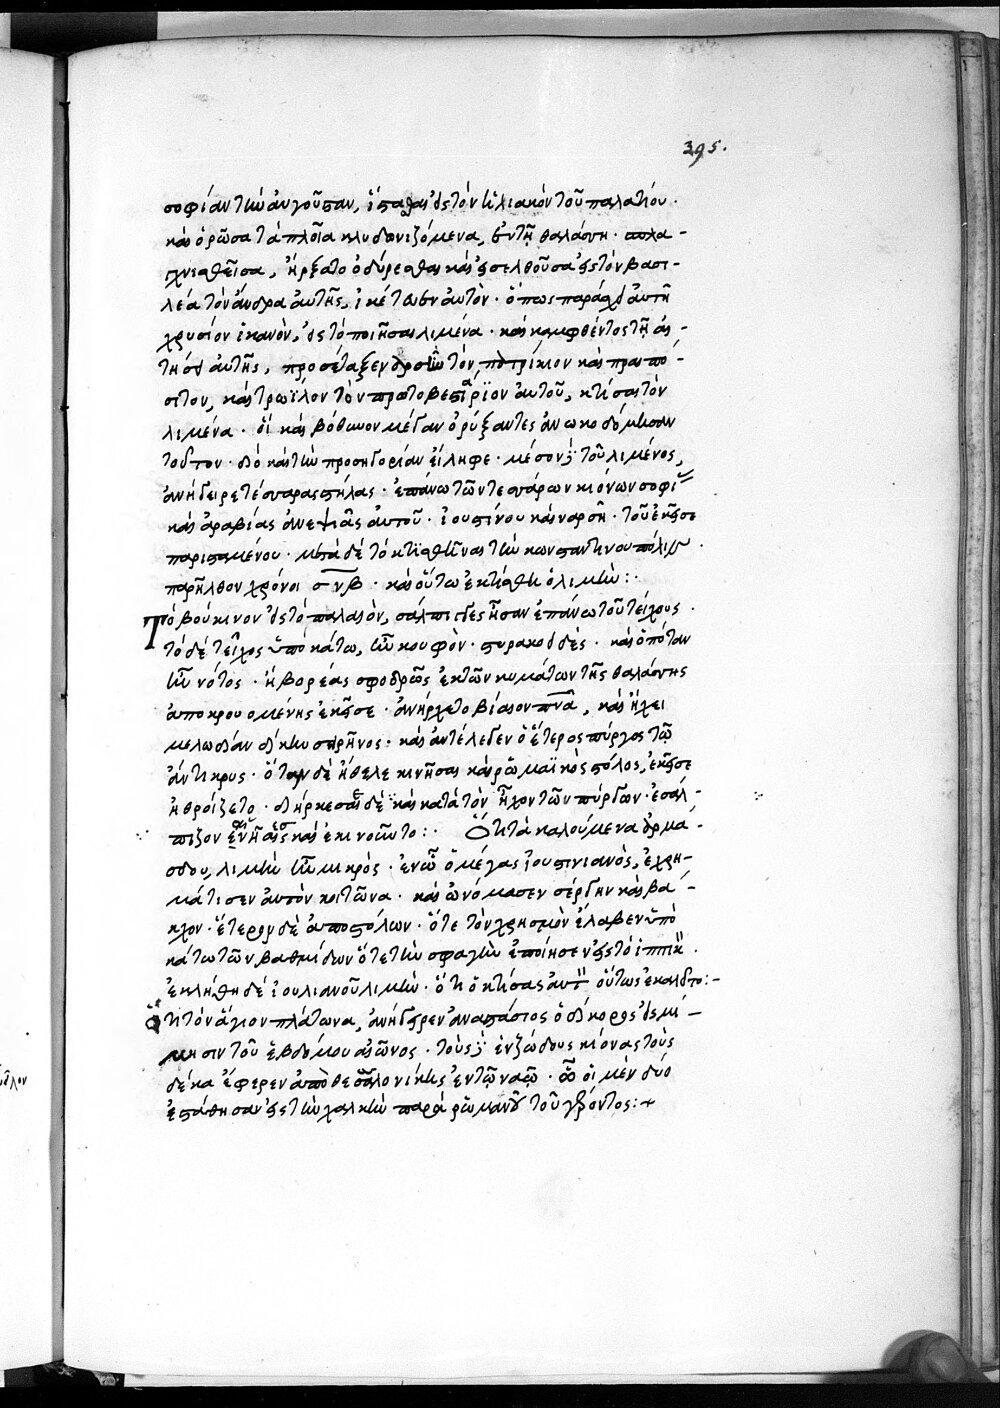 395.
σοφίαν τὴν αὐγοῦσταν, ἵστασθαι εἰς τὸν ἡλιακὸν τοῦ παλατίου.
καὶ ὁρῶσα τὰ πλοῖα κλυδωνιζόμενα, ἐν τῇ θαλάσση. σπλα-
χνισθεῖσα, ἤρξατο ὀδύρεσθαι καὶ εἰσελθοῦσα εἰς τὸν βασι-
λέα τὸν ἄνδρα αὐτῆς, ἱκέτευεν αὐτὸν. ὅπως παράσχει αὐτῆ
χρυσίον ἱκανὸν, εἰς τὸ ποιῆσαι λιμένα. καὶ καμφθέντος τῆ αἰ-
τήσει αὐτῆς, προσέταξεν τὸν πατρίκιον καὶ πραιπό-
σιτον, καὶ τρωΐλον τὸν πρωτοβεστιάριον αὐτοῦ, κτίσαι τὸν
λιμένα. οἵ καὶ βόθυνον μέγαν ὀρύξαντες ἀνωκοδόμησαν
τοῦτον. διὸ καὶ τὴν προσηγορίαν εἴληφε. μέσον δὲ τοῦ λιμένος,
ἀνήγειρε τέσσαρας στήλας. ἐπάνω τῶν τεσσάρων κιόνων σοφίας
καὶ ἀραβίας ἀνεψιᾶς αὐτοῦ. ἰουστίνου καὶ ναρσῆ. τοῦ ἐκεῖσε
παρισταμένου. μετὰ δὲ τὸ κτισθῆναι τὴν κωνσταντίνου πόλιν.
παρῆλθον χρόνοι σνβ. καὶ οὕτω ἐκτίσθη ὁ λιμὴν:.
Τὸ βούκινον εἰς τὸ παλαιὸν, σάλπιγγες ἦσαν ἐπάνω τοῦ τείχους.
τὸ δὲ τεῖχος ὑποκάτω, ἦν κουφὸν. συρακοῶδες. καὶ ὁπόταν
ἦν νότος. ἢ βορέας σφοδρῶς ἐκ τῶν κυμάτων τῆς θαλάσσης
ἀποκρουομένης ἐκεῖσε. ἀνήρχετο βίαιον πνα, καὶ ἤχει
μελωδίαν δίκην σειρῆνος. καὶ ἀντέλεγεν ὁ ἕτερος πύργος τῷ
ἄντικρυς. ὅταν δὲ ἤθελε κινῆσαι καὶ ῥωμαϊκὸς στόλος, ἐκεῖσε
ἠθροίζετο. διήρκεσαι δὲ καὶ κατὰ τὸν ἦχον τῶν πύργων. ἐσάλ-
πιζον καὶ ἐκινοῦντο:. Ὅτι τὰ καλούμενα ὁρμί-
σδου, λιμὴν ἦν μικρὸς. ἐν ᾧ ὁ μέγας ἰουστινιανὸς, ἐχρη-
μάτισεν αὐτὸν κοιτῶνα. καὶ ὠνόμασεν σέργην καὶ βά-
κχον. ἕτερον δὲ ἀποστόλων. ὅτε τὸν χρησμὸν ἔλαβεν ὑπὸ
κάτω τῶν βαθμίδων ὅτε τὴν σφαγὴν ἐποίησεν εἰς τὸ ἱππικ.
ἐκλήθη δὲ ἰουλιανοῦ λιμὴν. ὅτι ὁ κτίσας αὐτ οὕτως ἐκαλεῖτο:-
Ὅτι τὸν ἅγιον πλάτωνα, ἀνήγειρεν ἀναστάσιος ὁ δίκορος εἰς μί-
μησιν τοῦ ἑβδόμου αἰῶνος. τοὺς δὲ ἐνζώδους κίονας τοὺς
δέκα ἔφερεν ἀπὸ θεσσαλονίκης ἐν τῷ ναῷ. οἱ μὲν δύο
ἐστάθησαν εἰς τὴν χαλκὴν παρὰ ῥωμανοῦ τοῦ γέροντος:+